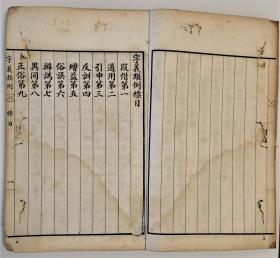 字義類例標目
叚借第一
通用第二
引申第三
反訓第四
增益第五
俗誤第六
辨譌第七
異同第八
正俗第九
字義類例
標目